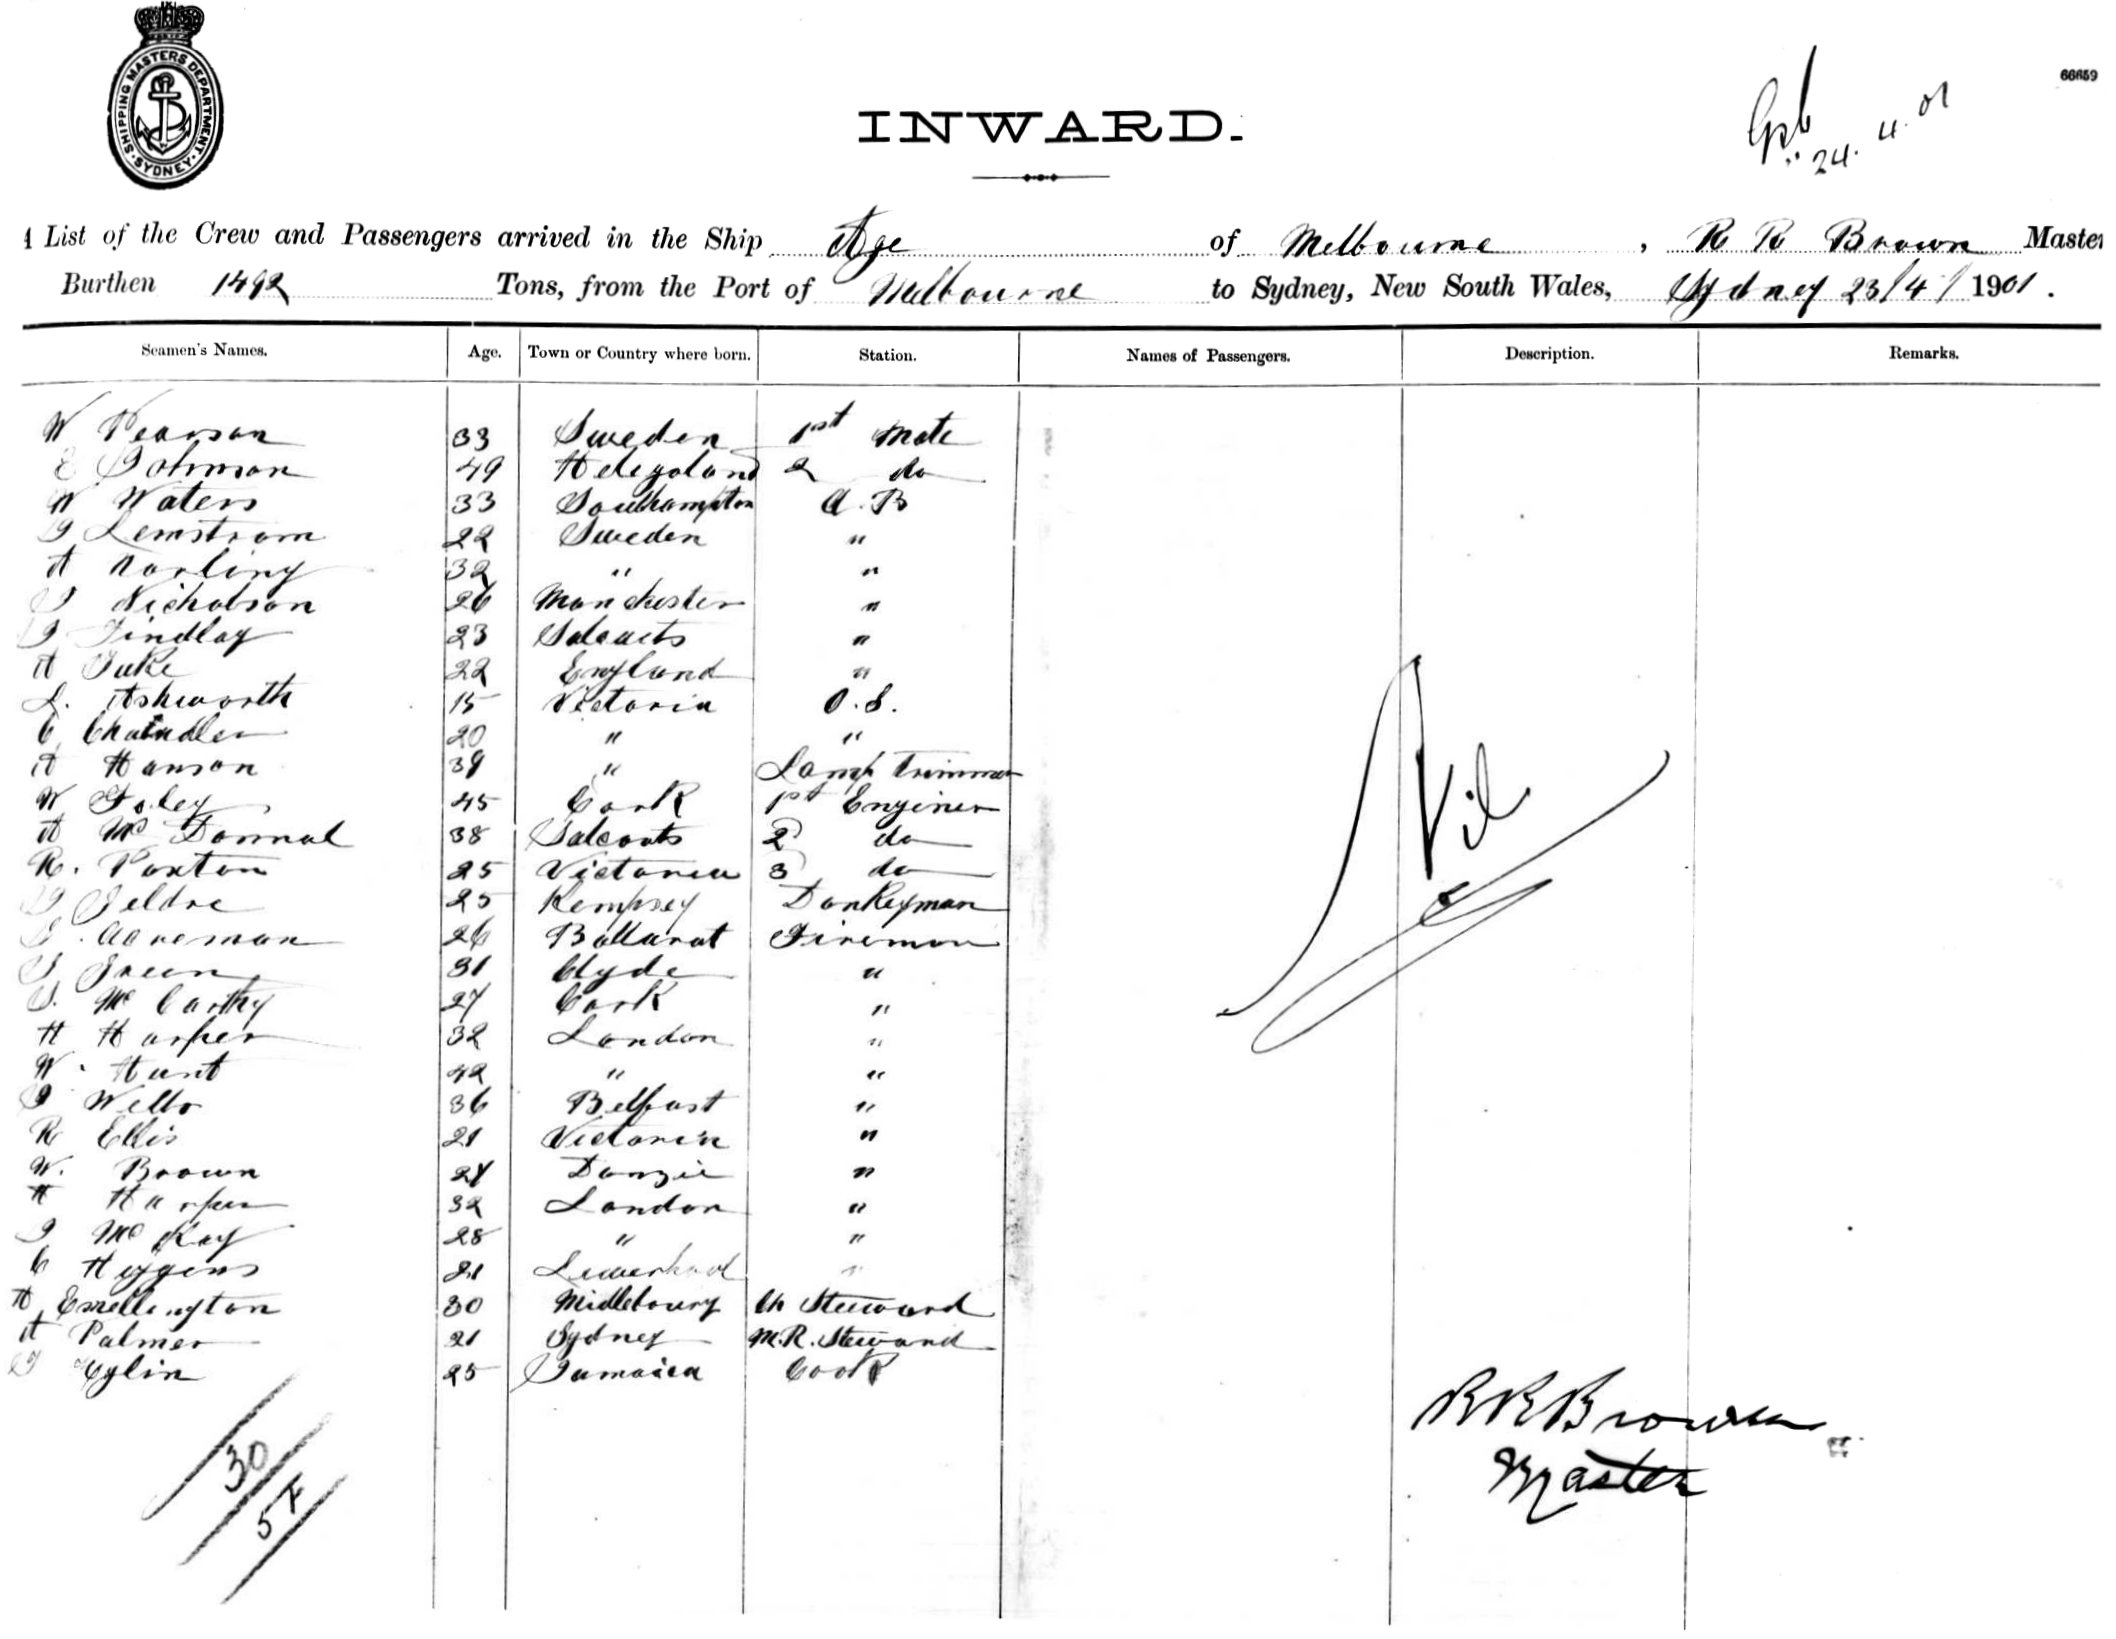 SHIPPING MASTERS DEPARTMENT. SYDNEY.
66659
24. 4. 01
INWARD.
A List of the Crew and Passengers arrived in the Ship Age of Melbourne, R R Brown Master
Burthen 1492 Tons, from the Port of Melbourne to Sydney, New South Wales, Sydney 23/4/1901.
Seamen's Names. Age. Town or Country where born. Station. Names of Passengers. Description. Remarks.
W Pearson 33 Sweden 1st Mate
E Johnson 49 Helegoland 2 do
W Waters 33 Southampton A.B
J Lemstrom 22 Sweden "
A Norling 32 " "
J Nicholson 26 Manchester "
J Findlay 23 "
A Juke 22 England "
L. Ashworth 15 Victoria O.S.
C Chandler 20 " "
A Hanson 39 " Lamp Trimmer
W Foley 45 Cork 1st Enginer
A Mc Donnal 38 Salcoats 2 do
R. Paxton 25 Victoria 3 do
25 Kempsey Donkeyman
Acreman 26 Ballarat Fireman
J Green 31 Clyde "
Mc Carthy 27 Cork "
H Harper 32 London "
W. Hunt 42 " "
J 36 Belfast "
R Ellis 21 Victoria "
W. Brown Danzic "
H Harper 32 London "
J Mc Kay 28 " "
C Higgens 21 "
30 Midlebourg Ch Steward
A Palmer 21 Sydney M.R. Steward
25 Jamaica Cook
Nil
30
54
R R Brown
Master